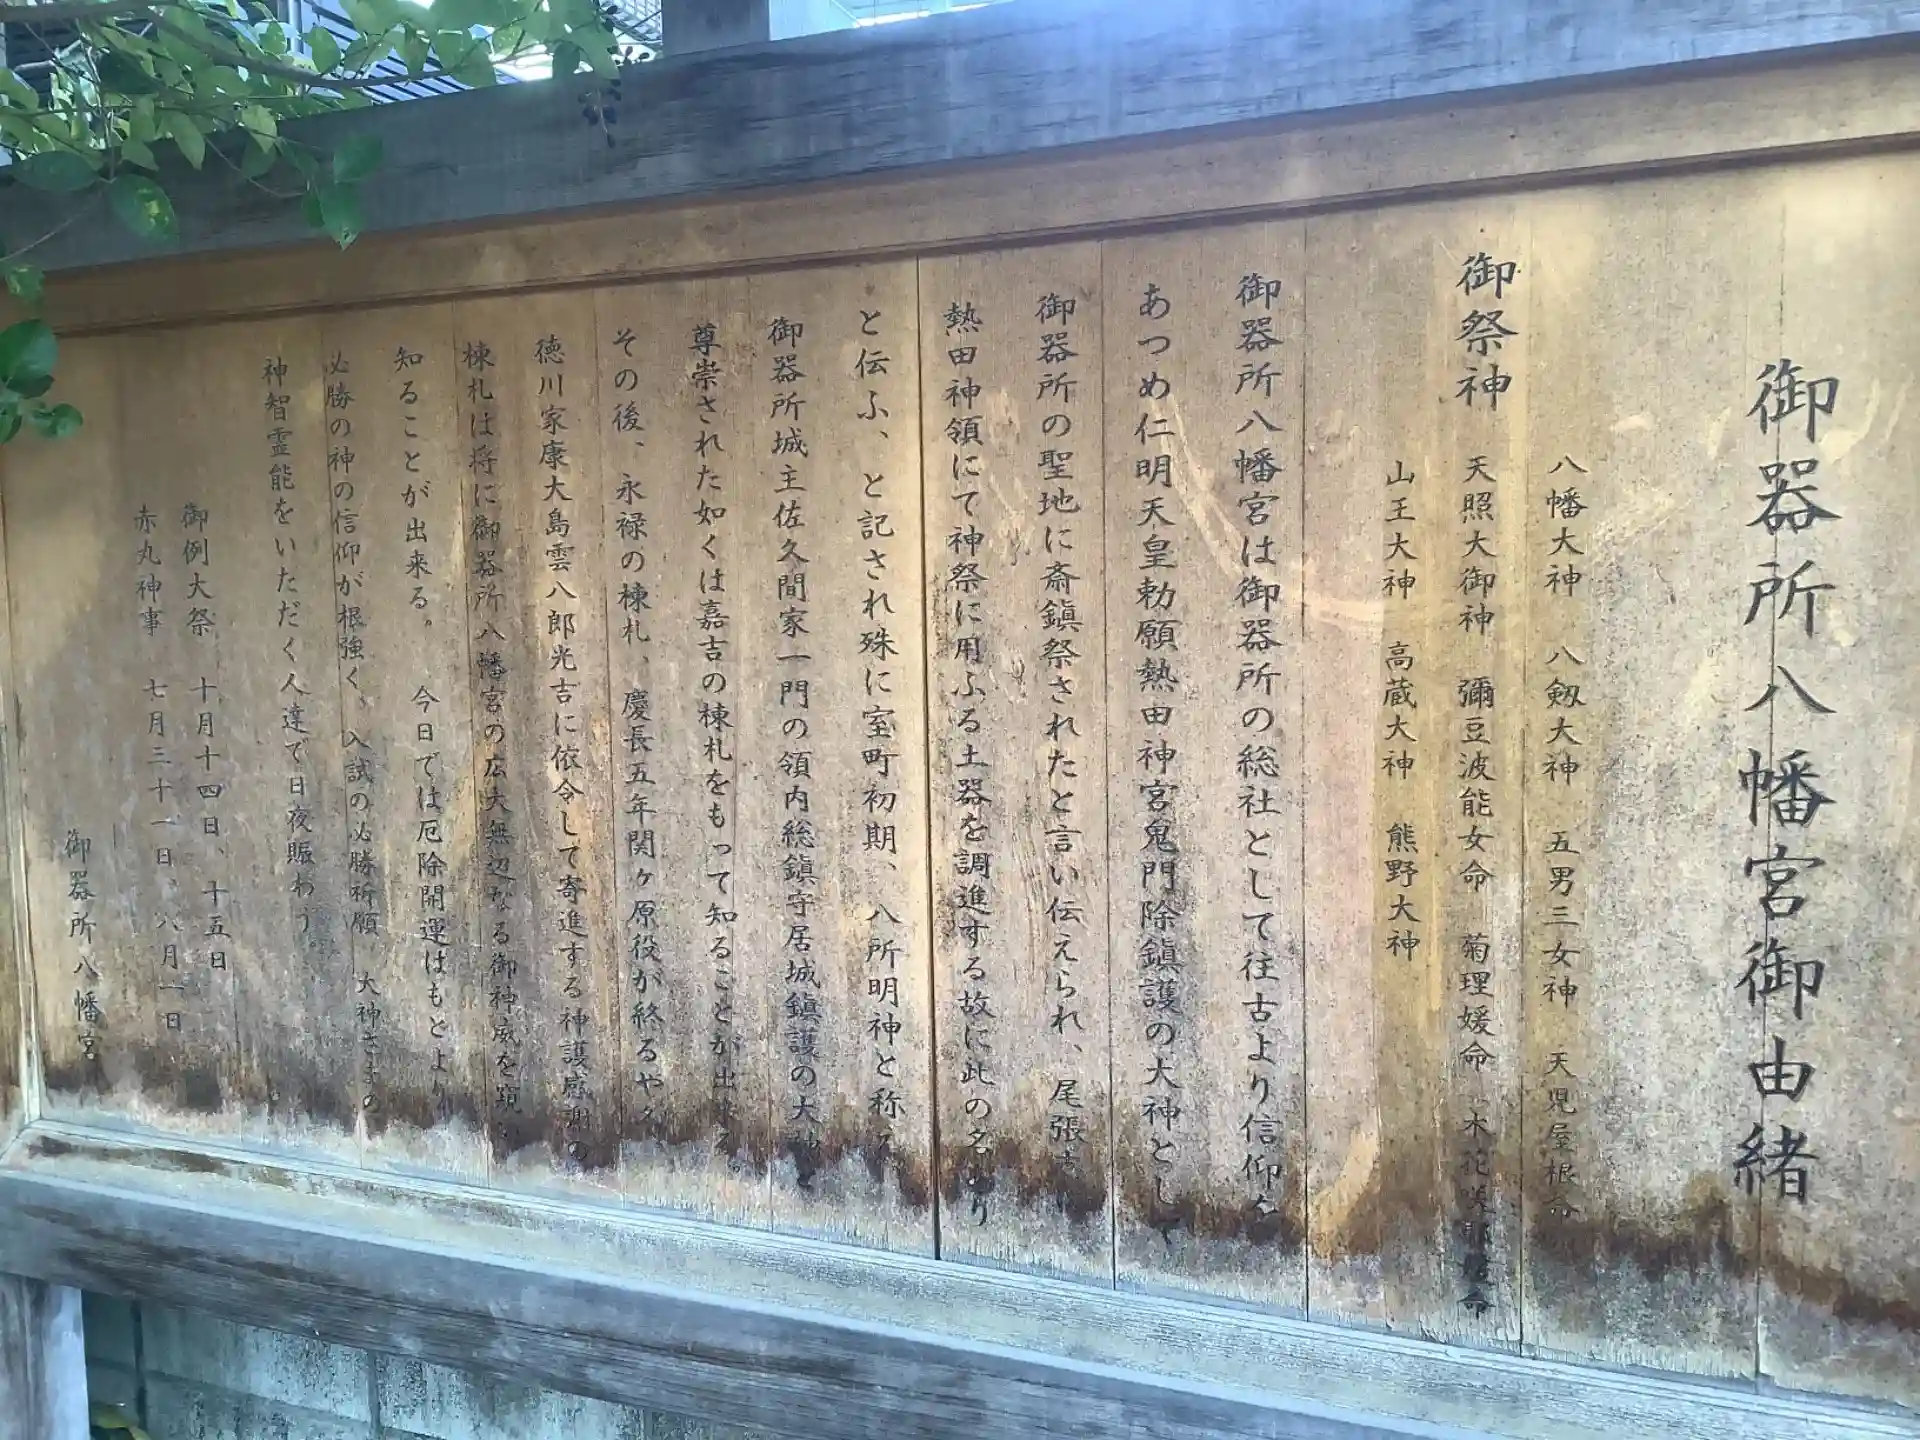 御器所八幡宮御由緒
八幡大神 八剱大神 五男三女神 天児屋根命
御祭神 天照大御神 彌豆波能女命 菊理媛命 木花咲耶媛命
山王大神 高蔵大神 熊野大神
御器所八幡宮は御器所の総社として往古より信仰を
あつめ仁明天皇勅願熱田神宮鬼門除鎮護の大神として
御器所の聖地に斎鎮祭されたと言い伝えられ、尾張
熱田神領にて神祭に用ふる土器を調進する故に此の名あり
と伝ふ、と記され殊に室町初期、八所明神と称へ
御器所城主佐久間家一門の領内総鎮守居城鎮護の大神と
尊崇された如くは嘉吉の棟札をもって知ることが出来る。
その後、永禄の棟札、慶長五年関ヶ原役が終るや
徳川家康大島雲八郎光吉に依令して寄進する神護感謝の
棟札は将に御器所八幡宮の広大無辺なる御神威を窺い
知ることが出来る。 今日では厄除開運はもとより
必勝の神の信仰が根強く、入試の必勝祈願 大神さまの
神智霊能をいただく人達で日夜賑わう。
御例大祭 十月十四日、十五日
赤丸神事 七月三十一日、八月一日
御器所八幡宮